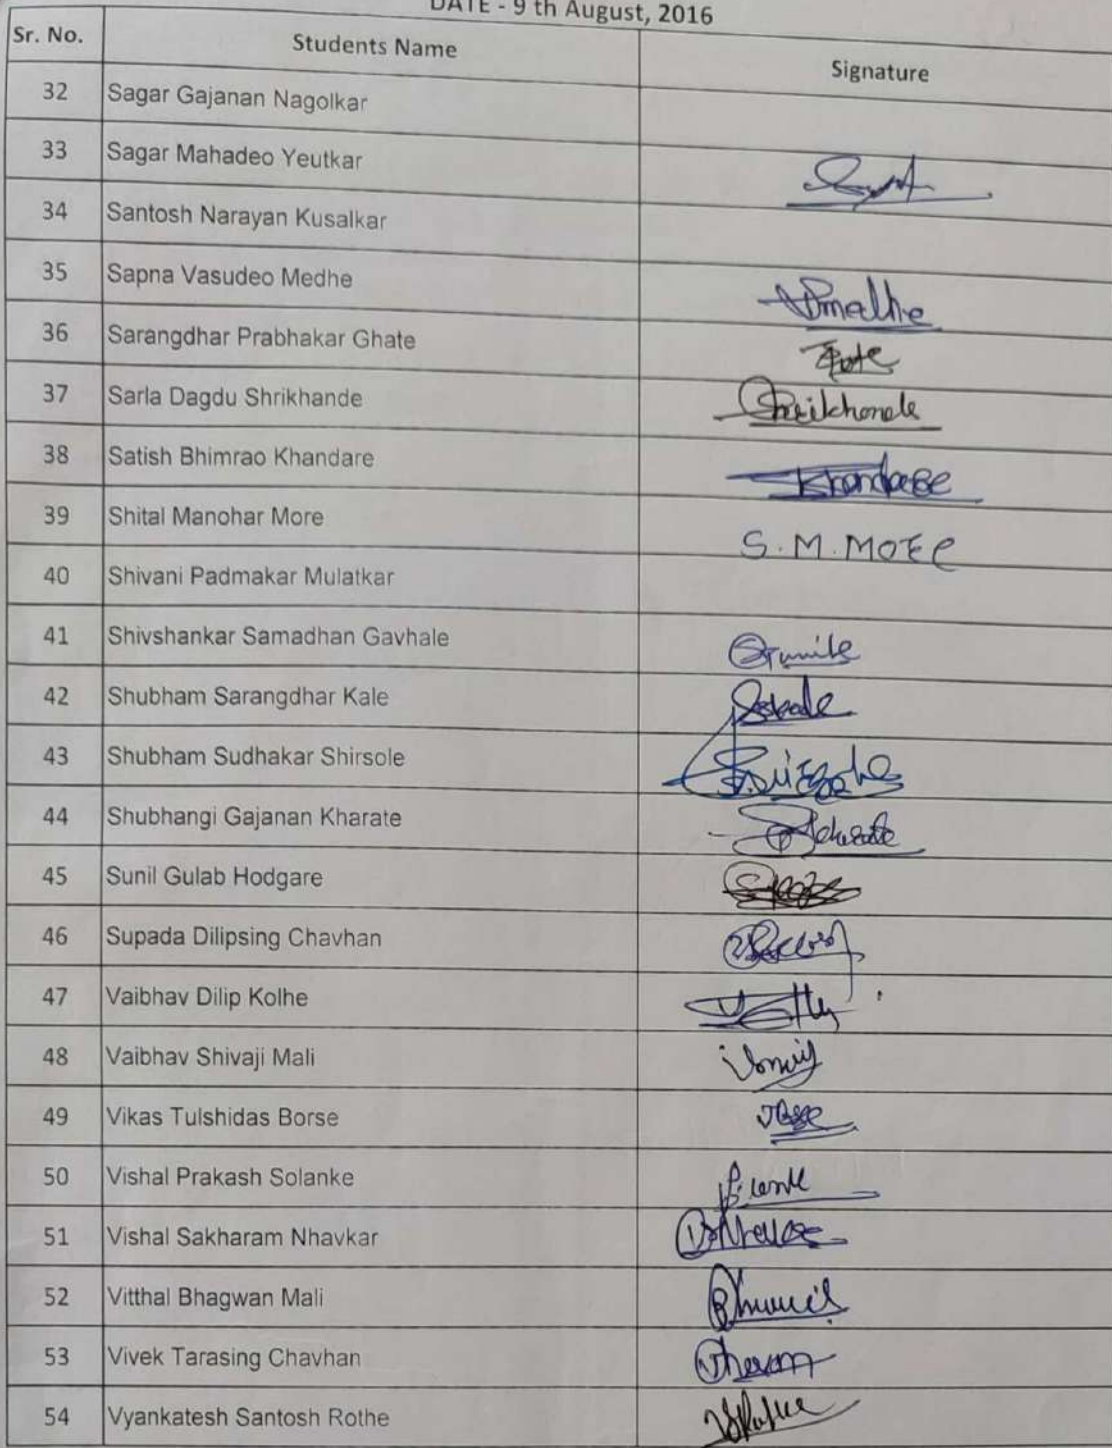 DATE - 9 th August, 2016
Sr. No. Students Name Signature
32 Sagar Gajanan Nagolkar
33 Sagar Mahadeo Yeutkar
34 Santosh Narayan Kusalkar
35 Sapna Vasudeo Medhe
36 Sarangdhar Prabhakar Ghate
37 Sarla Dagdu Shrikhande Shrikhande
38 Satish Bhimrao Khandare Khandare
39 Shital Manohar More S. M. More
40 Shivani Padmakar Mulatkar
41 Shivshankar Samadhan Gavhale
42 Shubham Sarangdhar Kale
43 Shubham Sudhakar Shirsole
44 Shubhangi Gajanan Kharate
45 Sunil Gulab Hodgare
46 Supada Dilipsing Chavhan
47 Vaibhav Dilip Kolhe
48 Vaibhav Shivaji Mali
49 Vikas Tulshidas Borse
50 Vishal Prakash Solanke
51 Vishal Sakharam Nhavkar
52 Vitthal Bhagwan Mali
53 Vivek Tarasing Chavhan
54 Vyankatesh Santosh Rothe